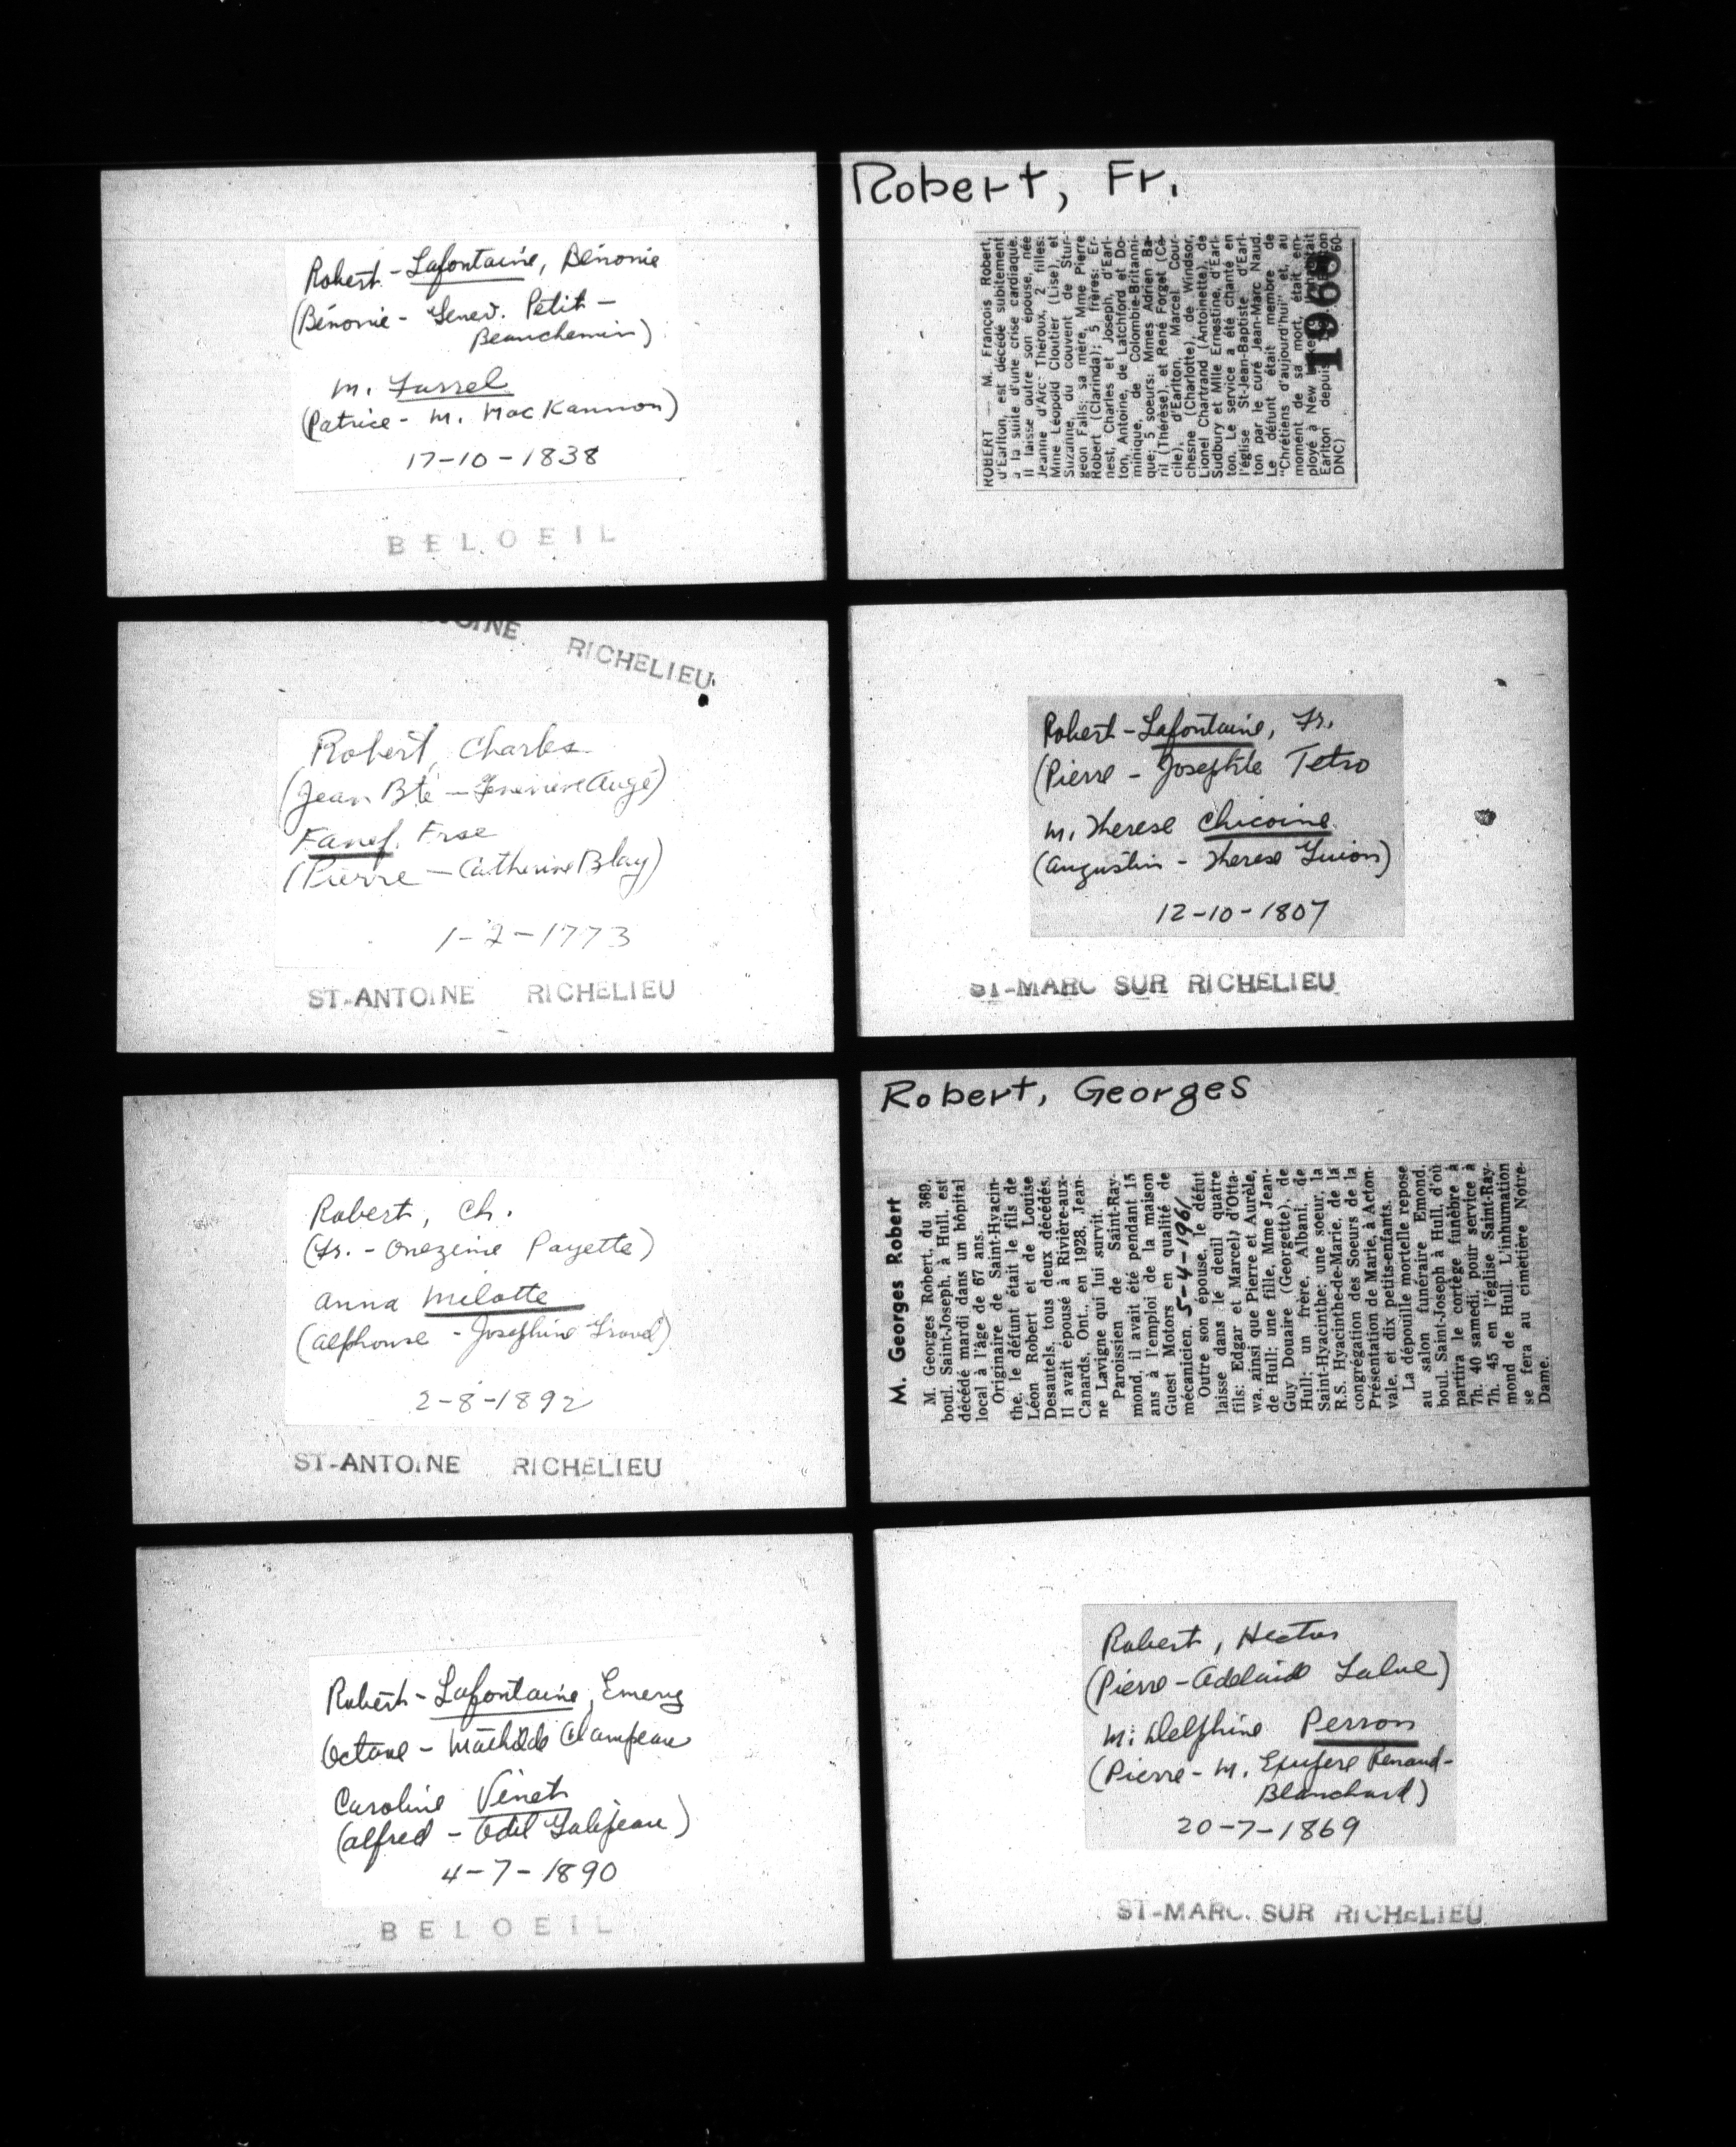 Robert - Lafontaine, Bénonie
(Bénonie - Genev. Petit -
Beauchemin)
M. Farrel
(Patrice - M. MacKannon)
17-10-1838
BELOEIL
RICHELIEU
Robert, Charles
(Jean Bte - Geneviève Augé)
Fanef, Frse
(Pierre - Catherine Blay)
1-2-1773
ST-ANTOINE RICHELIEU
Robert, Ch.
(Fr. - Onezime Payette)
Anna Milotte
(Alphonse - Josephine)
2-8-1892
ST-ANTOINE RICHELIEU
Robert - Lafontaine, Emery
Octave - Mathilde Champeau
Caroline Vinet
(Alfred - Odil Galipeau)
4-7-1890
BELOEIL
Robert, Fr.
ROBERT — M. François Robert,
d'Earlton, est décédé subitement
à la suite d'une crise cardiaque.
Il laisse outre son épouse, née
Jeanne d'Arc Théroux, 2 filles:
Mme Léopold Cloutier (Lise), et
Suzanne, du couvent de Stur-
geon Falls; sa mère, Mme Pierre
Robert (Clarinda); 5 frères: Er-
nest, Charles et Joseph, d'Earl-
ton, Antoine, de Latchford et Do-
minique, de Colombie-Britanni-
que; 5 soeurs: Mmes Adrien Ba-
ril (Thérèse), et René Forget (Cé-
cile), d'Earlton, Marcel Cour-
chesne (Charlotte), de Windsor,
Lionel Chartrand (Antoinette), de
Sudbury et Mlle Ernestine, d'Earl-
ton. Le service a été chanté en
l'église St-Jean-Baptiste d'Earl-
ton par le curé Jean-Marc Naud.
Le défunt était membre de
"Chrétiens d'aujourd'hui" et, au
moment de sa mort, était em-
ployé à New
Earlton depuis
DNC)
1968
Robert - Lafontaine, Fr.
(Pierre - Josephte Tetro
M. Therese Chicoine
(Augustin - Therese Guion)
12-10-1807
ST-MARC SUR RICHELIEU
Robert, Georges
M. Georges Robert
M. Georges Robert, du 369,
boul. Saint-Joseph, à Hull, est
décédé mardi dans un hôpital
local à l'âge de 67 ans.
Originaire de Saint-Hyacin-
the, le défunt était le fils de
Léon Robert et de Louise
Desautels, tous deux décédés.
Il avait épousé à Rivière-aux-
Canards, Ont., en 1928, Jean-
ne Lavigne qui lui survit.
Paroissien de Saint-Ray-
mond, il avait été pendant 15
ans à l'emploi de la maison
Guest Motors en qualité de
mécanicien. 5-4-1961
Outre son épouse, le défunt
laisse dans le deuil quatre
fils: Edgar et Marcel, d'Otta-
wa, ainsi que Pierre et Aurèle,
de Hull; une fille, Mme Jean-
Guy Douaire (Georgette), de
Hull; un frère, Albani, de
Saint-Hyacinthe; une soeur, la
R.S. Hyacinthe-de-Marie, de la
congrégation des Soeurs de la
Présentation de Marie, à Acton-
vale, et dix petits-enfants.
La dépouille mortelle repose
au salon funéraire Emond,
boul. Saint-Joseph à Hull, d'où
partira le cortège funèbre à
7h. 40 samedi, pour service à
7h. 45 en l'église Saint-Ray-
mond de Hull. L'inhumation
se fera au cimetière Notre-
Dame.
Robert, Hector
(Pierre - Adelaide Lalue)
M: Delphine Perron
(Pierre - M. Renaud-
Blanchard)
20-7-1869
ST-MARC SUR RICHELIEU